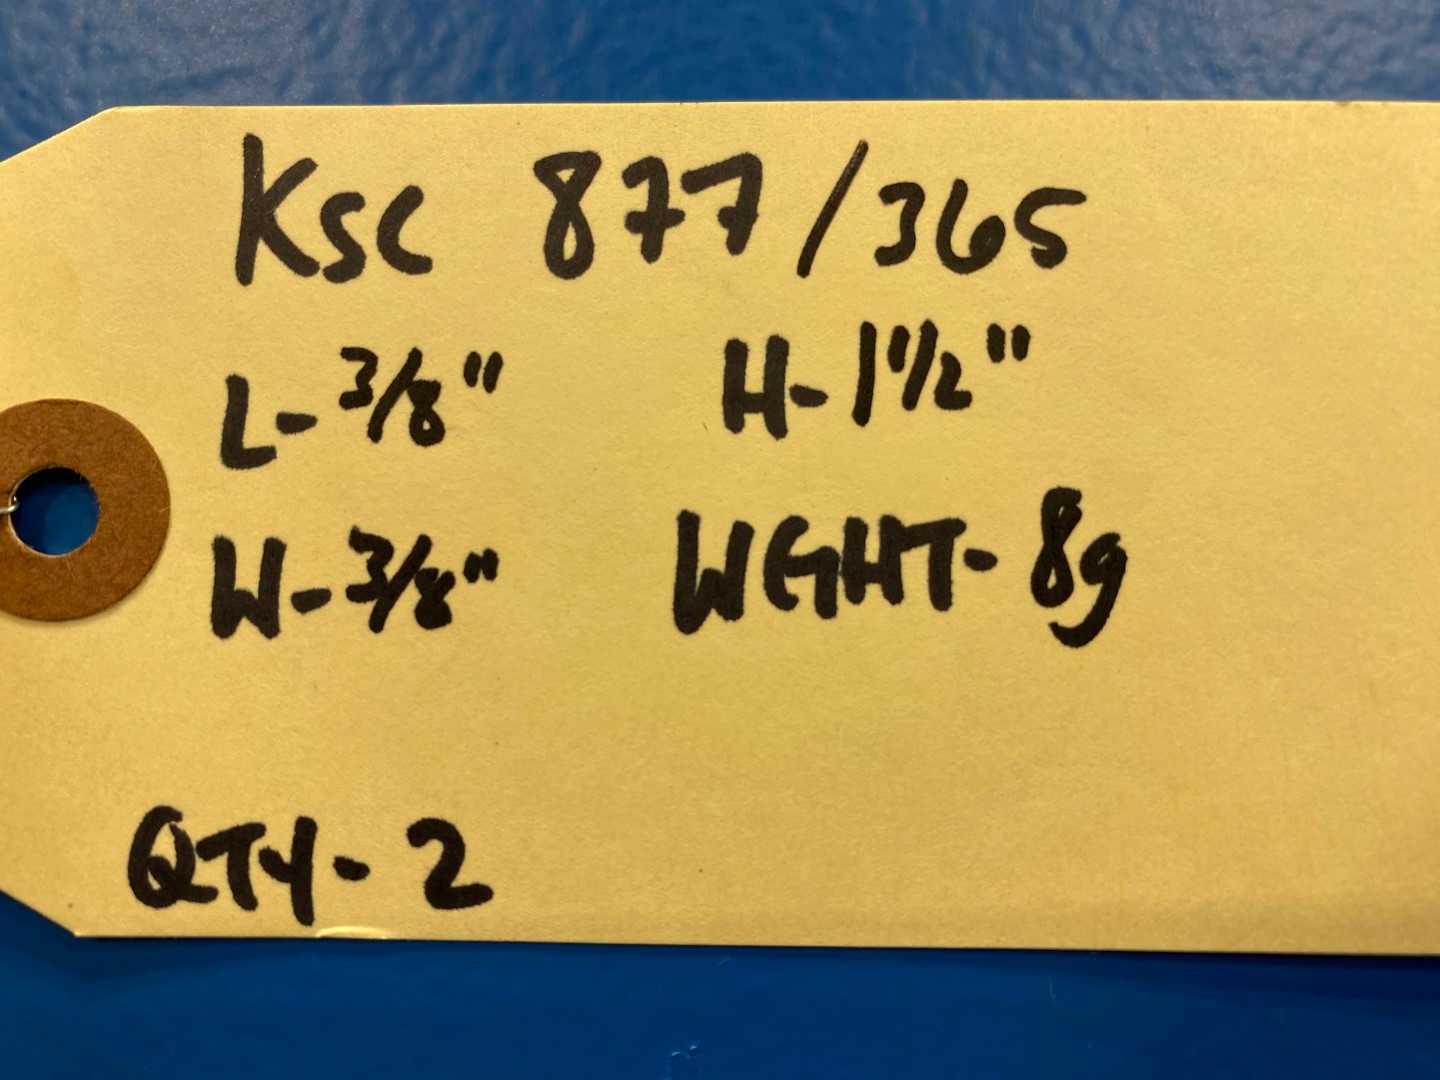 KSC 877/365
L-3/8" H-1 1/2"
W-3/8" WGHT-8g
QTY-2